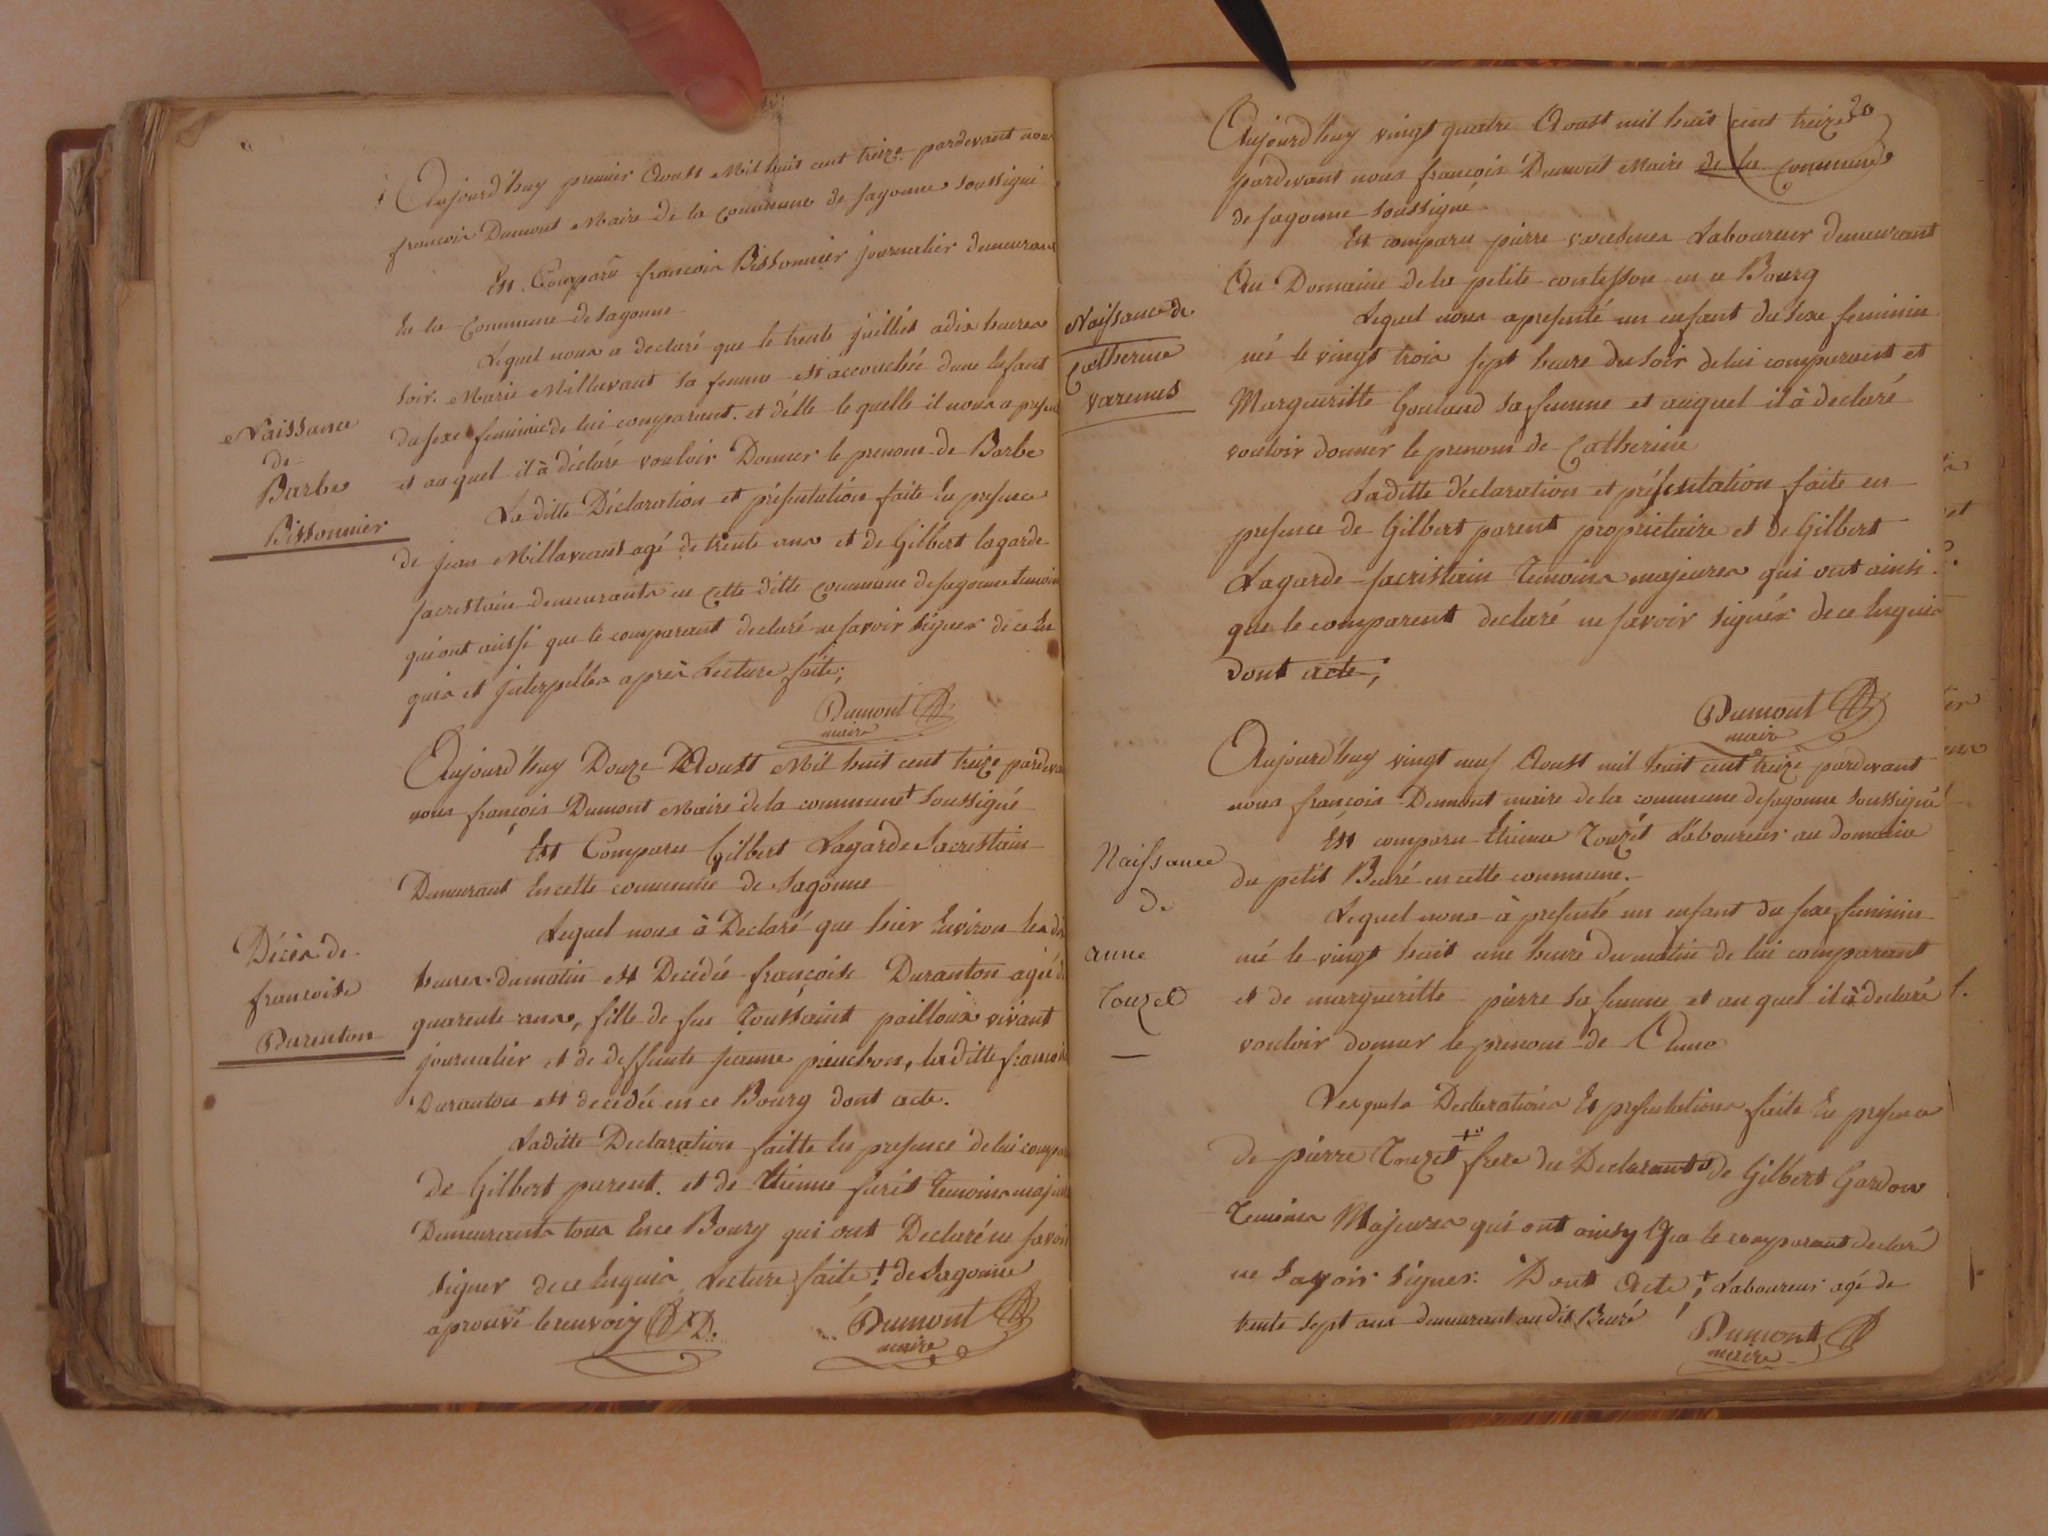 Aujourd'huy premier Aoust Mil huit cent treize pardevant nous
francois Dumont Maire de la Commune de Sagonne Soussigné
Est Comparu francois Bissonnier journalier demeurant
En la Commune de Sagonne
Lequel nous a declaré que le trente juillet a dix heures
Soir Marie Millavaut sa femme est accouchée dune Enfant
du sexe feminin de lui comparant et d'elle le quelle il nous a present
et auquel il à déclaré vouloir Donner le prenom de Barbe
La ditte Déclaration et présentation faite En presence
de jean Millavaut agé de trente ans et de Gilbert lagarde
sacristain demeurants en Cette ditte Commune de sagonne temoins
qui ont aussi que le comparant declaré ne savoir signer de ce En
quis et jnterpellés après Lecture faite;
Dumont
maire
Naissance
de
Barbe
Bissonnier
Aujourd'huy Douze Aoust Mil huit cent treize pardeva
nous françois Dumont Maire de la commune + Soussigné
Est Comparu Gilbert Lagarde Sacristain
Demeurant En cette commune de Sagonne
Lequel nous à Declaré que hier Environ les di
heures du matin est Decédée françoise Duranton agée d
quarente ans, fille de feu Toussaint pailloux vivant
journalier et de deffunte jeanne pieuchon, la ditte francoi
Duranton est decedée en ce Bourg dont acte.
Laditte Declaration faitte En presence de lui compa
de Gilbert parent. et de Etienne furet temoins maje
Demeurants tous En ce Bourg qui ont Declaré ne savoi
signer de ce Enquis Lecture faite; + de Sagonne
aprouvé le renvoiy D.
Dumont
maire
Décès de
francoise
Durenton
20
Aujourd'huy vingt quatre Aoust mil huit cent treize
pardevant nous françois Dumont Maire de la commune
de Sagonne Soussigné
Est comparu pierre varesnes Laboureur demeurant
Au Domaine de la petite contesson en ce Bourg
Lequel nous a presenté un enfant du Sexe feminin
né le vingt trois sept heure du soir de lui comparant et
Margueritte Gouland sa femme et auquel il à declaré
vouloir donner le prenom de Catherine
Laditte déclaration et présentation faite en
presence de Gilbert parent propriétaire et de Gilbert
Lagarde sacristain Temoins majeures qui ont ainsi
que le comparent declaré ne savoir signér de ce Enquis
dont acte;
Dumont
maire
Naissance de
Catherine
varenes
Aujourd'huy vingt neuf Aoust mil huit cent treize pardevant
nous françois Dumont maire de la commune de sagonne soussigné
Est comparu Etienne Touzet Laboureur au domaine
du petit Beuré en cette commune.
Lequel nous à presenté un enfant du sexe feminin
né le vingt huit une heure du matin de lui comparant
et de margueritte pierre sa femme et auquel il à declaré
vouloir donner le prenom de Anne
Lesquels Declarations Et presentations faite En presence
de pierre Touzet + frere du Declarant & de Gilbert Gardon
Temoins Majeures qui ont ainsy que le comparant declaré
ne savoir signer. Dont Acte; + Laboureur agé de
trente sept ans demeurant audit Beuré
Dumont
maire
Naissance
de
anne
Touzet